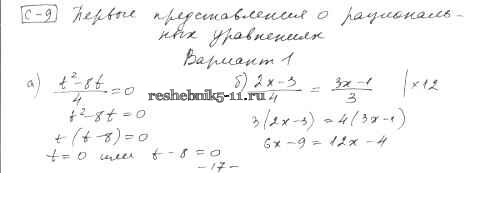 С-9 Первые представления о рациональ-
ных уравнениях
Вариант 1
а) (t²-8t)/4 = 0
t²-8t=0
t(t-8)=0
t=0 или t-8=0
б) (2x-3)/4 = (3x-1)/3 | ×12
3(2x-3)=4(3x-1)
6x-9=12x-4
reshebnik5-11.ru
-17-